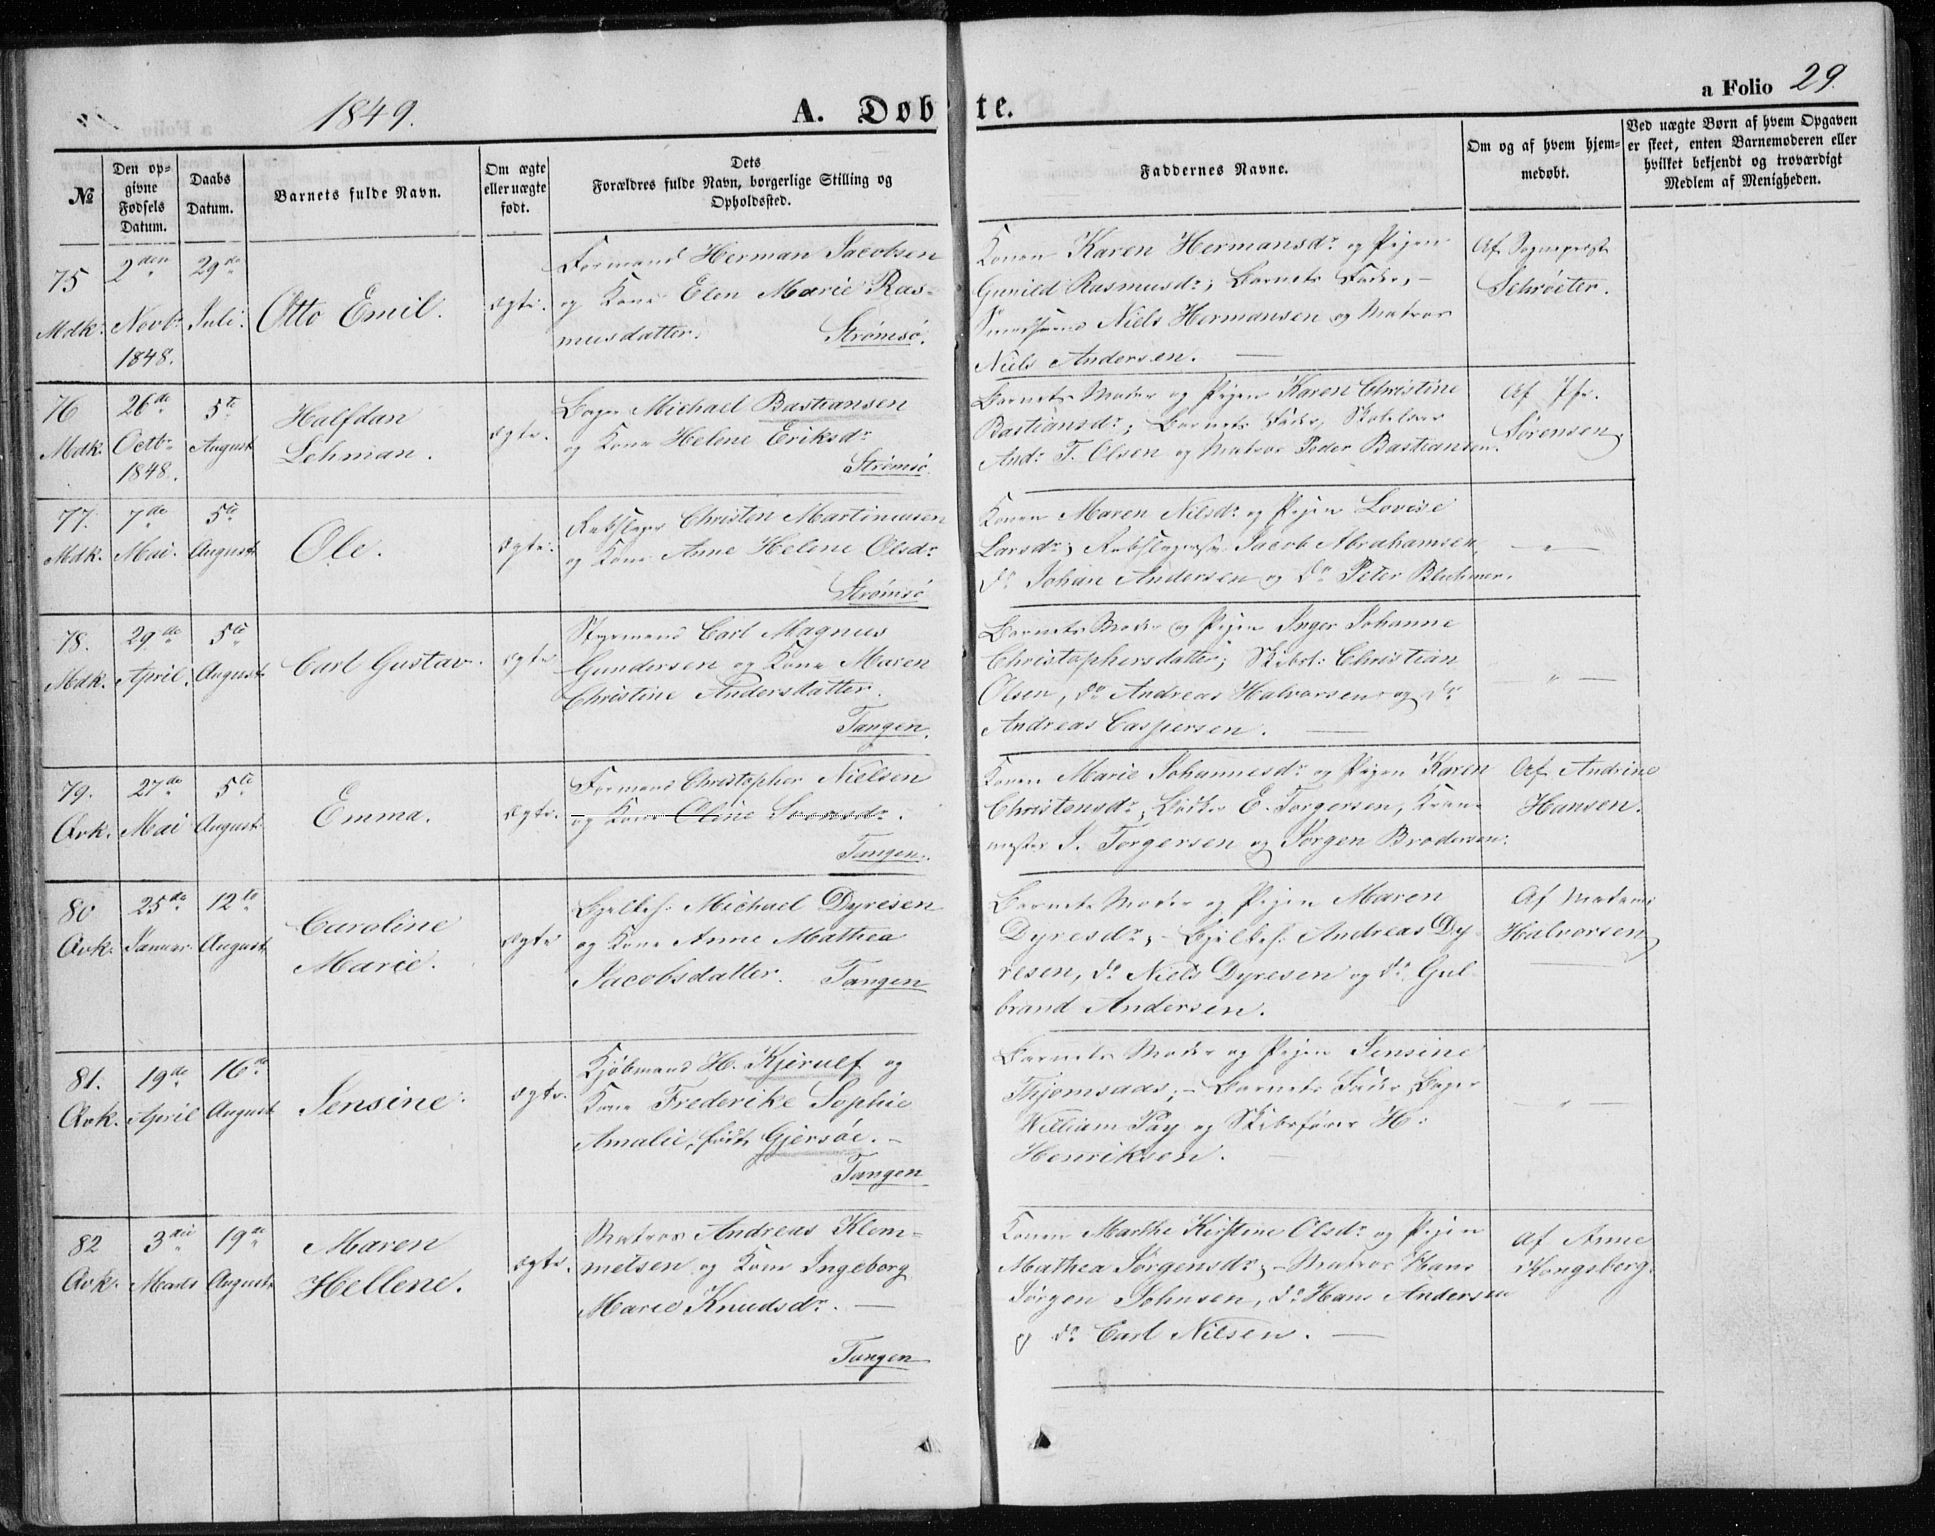 1849.
A. Døbte.
a Folio 29.
№
Den op-
givne
Fødsels
Datum.
Daabs
Datum.
Barnets fulde Navn.
Om ægte
eller uægte
født.
Dets
Forældres fulde Navn, borgerlige Stilling og
Opholdssted.
Faddernes Navne.
Om og af hvem hjem-
medøbt.
Ved uægte Børn af hvem Opgaven
er skeet, enten Barnemoderen eller
hvilket bekjendt og troværdigt
Medlem af Menigheden.
75
Mdk.
2den
Novbr
1848.
29de
Juli.
Otto Emil.
ægte.
Formand Herman Jacobsen
og Kone Elen Marie Ras-
musdatter.
Strømsø.
Konen Karen Hermansdr og Pigen
Gunild Rasmusdr; Barnets Fader,
Niels Hermansen og Matros
Niels Andersen.
Af Sognepræst
Schrøeter.
76
Mdk.
26de
Octbr
1848.
5te
August
Halfdan
Lehman.
ægte.
Bager Michael Bastiansen
og Kone Helene Eriksdr
Strømsø.
Barnets Moder og Pigen Karen Christine
Bastiansdr; Barnets Fader,
Andr T. Olsen og Matros Peder Bastiansen.
Af Jfr.
Sørensen.
77.
Mdk.
7de
Mai.
5te
August
Ole.
ægte.
Rebslager Christen Martinusen
og Kone Anne Helene Olsdr
Strømsø
Konen Maren Nilsdr og Pigen Lovise
Larsdr; Jacob Abrahamsen,
do Johan Andersen og do Peter Bluhmer.
— " —
78.
Mdk.
29de
April.
5te
August
Carl Gustav.
ægte
Styrmand Carl Magnus
Gundersen og Kone Maren
Christine Andersdatter.
Tangen.
Barnets Moder og Pigen Inger Johanne
Christophersdatter; Skibst: Christian
Olsen, do Andreas Halvorsen og do
Andreas Caspersen.
— " —
79.
Qvk.
27de
Mai
5te
August
Emma.
ægte.
Formand Christopher Nielsen
og Kone Oline
Tangen.
Konen Marie Johannesdr og Pigen Karen
Christensdr; E. Torgersen,
J. Torgersen og Jørgen Brodersen.
Af Andrine
Hansen.
80
Qvk.
25de
Januar
12te
August
Caroline
Marie.
ægte
Bjelkeh. Michael Dyresen
og Kone Anne Mathea
Jacobsdatter. Tangen
Barnets Moder og Pigen Maren
Dyresdr, — Bjelkeh. Andreas Dy-
resen, do Niels Dyresen og do Gul-
brand Andersen.
Af Madame
Halvorsen
81.
Qvk.
19de
April
16de
August
Jensine.
ægte.
Kjøbmand H. Kjerulf og
Kone Frederike Sophie
Amalie, født Gjersøe. —
Tangen
Barnets Moder og Pigen Jensine
Thjomsaas; — Barnets Fader, Bager
William Pay og Skibsfører H:
Henriksen.
— " —
82
Qvk.
3die
Marts
19de
August
Maren
Hellene.
ægte.
Matros Andreas Klem-
metsen og Kone Ingeborg
Marie Knudsdr.
Tangen
Konen Marthe Kirstine Olsdr og Pigen
Mathea Jørgensdr, — Matros Hans
Jørgen Johnsen, do Hans Andersen
og do Carl Nilsen.
Af Anne
Kongsberg.